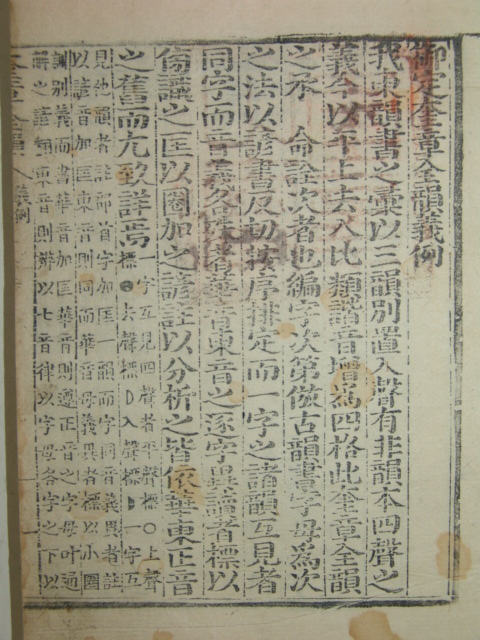 御定奎章全韻義例
我東韻書之彙以三韻別置入聲有非韻本四聲之
義今以平上去入比類諧音增爲四格此奎章全韻
之承 命詮次者也編字次第倣古韻書字母爲次
之法以諺書反切按序排定而一字之諸韻互見者
同字而音義各殊者華音東音之逐字異讀者標以
之匡以圈加之諺註以分析之皆依華東正音
之舊而尤致詳焉
一字互見四聲者平聲標○上聲
標 去聲標 入聲標 一字互
見他韻者註而首字加匡一韻而字同音義異者註
以諺音加匡東音則同而華音母義異者標以小圈
別義而書華音加匡華音則遵正音之字母叶通
解之諺類東音則辨以七音律以字母各字之下以